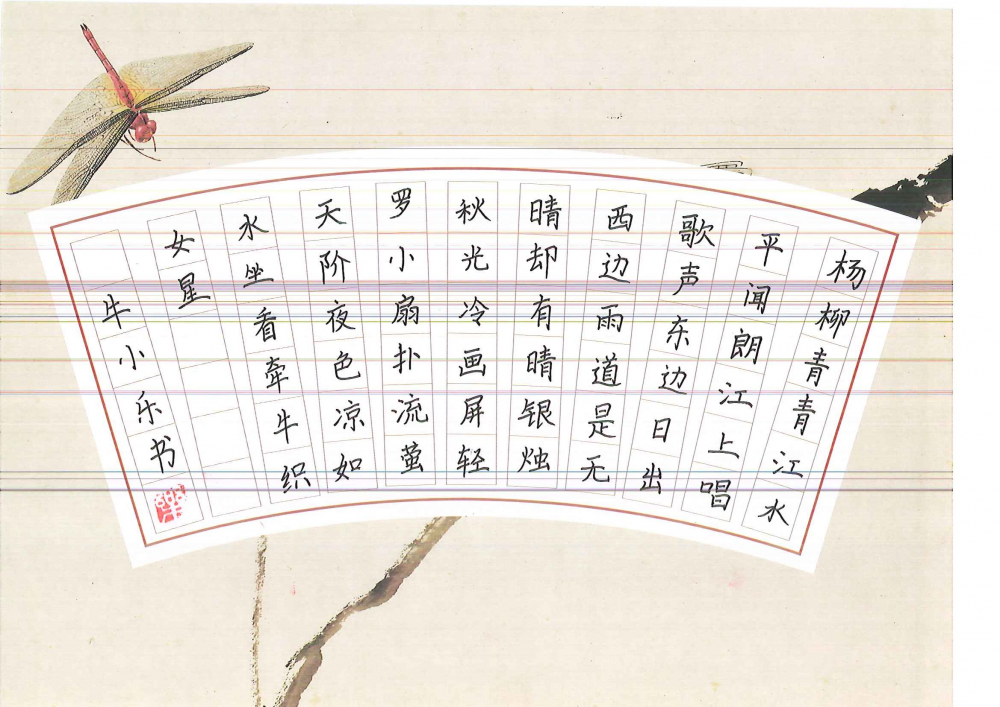 杨柳青青江水
平闻朗江上唱
歌声东边日出
西边雨道是无
晴却有晴银烛
秋光冷画屏轻
罗小扇扑流萤
天阶夜色凉如
水坐看牵牛织
女星
牛小乐书